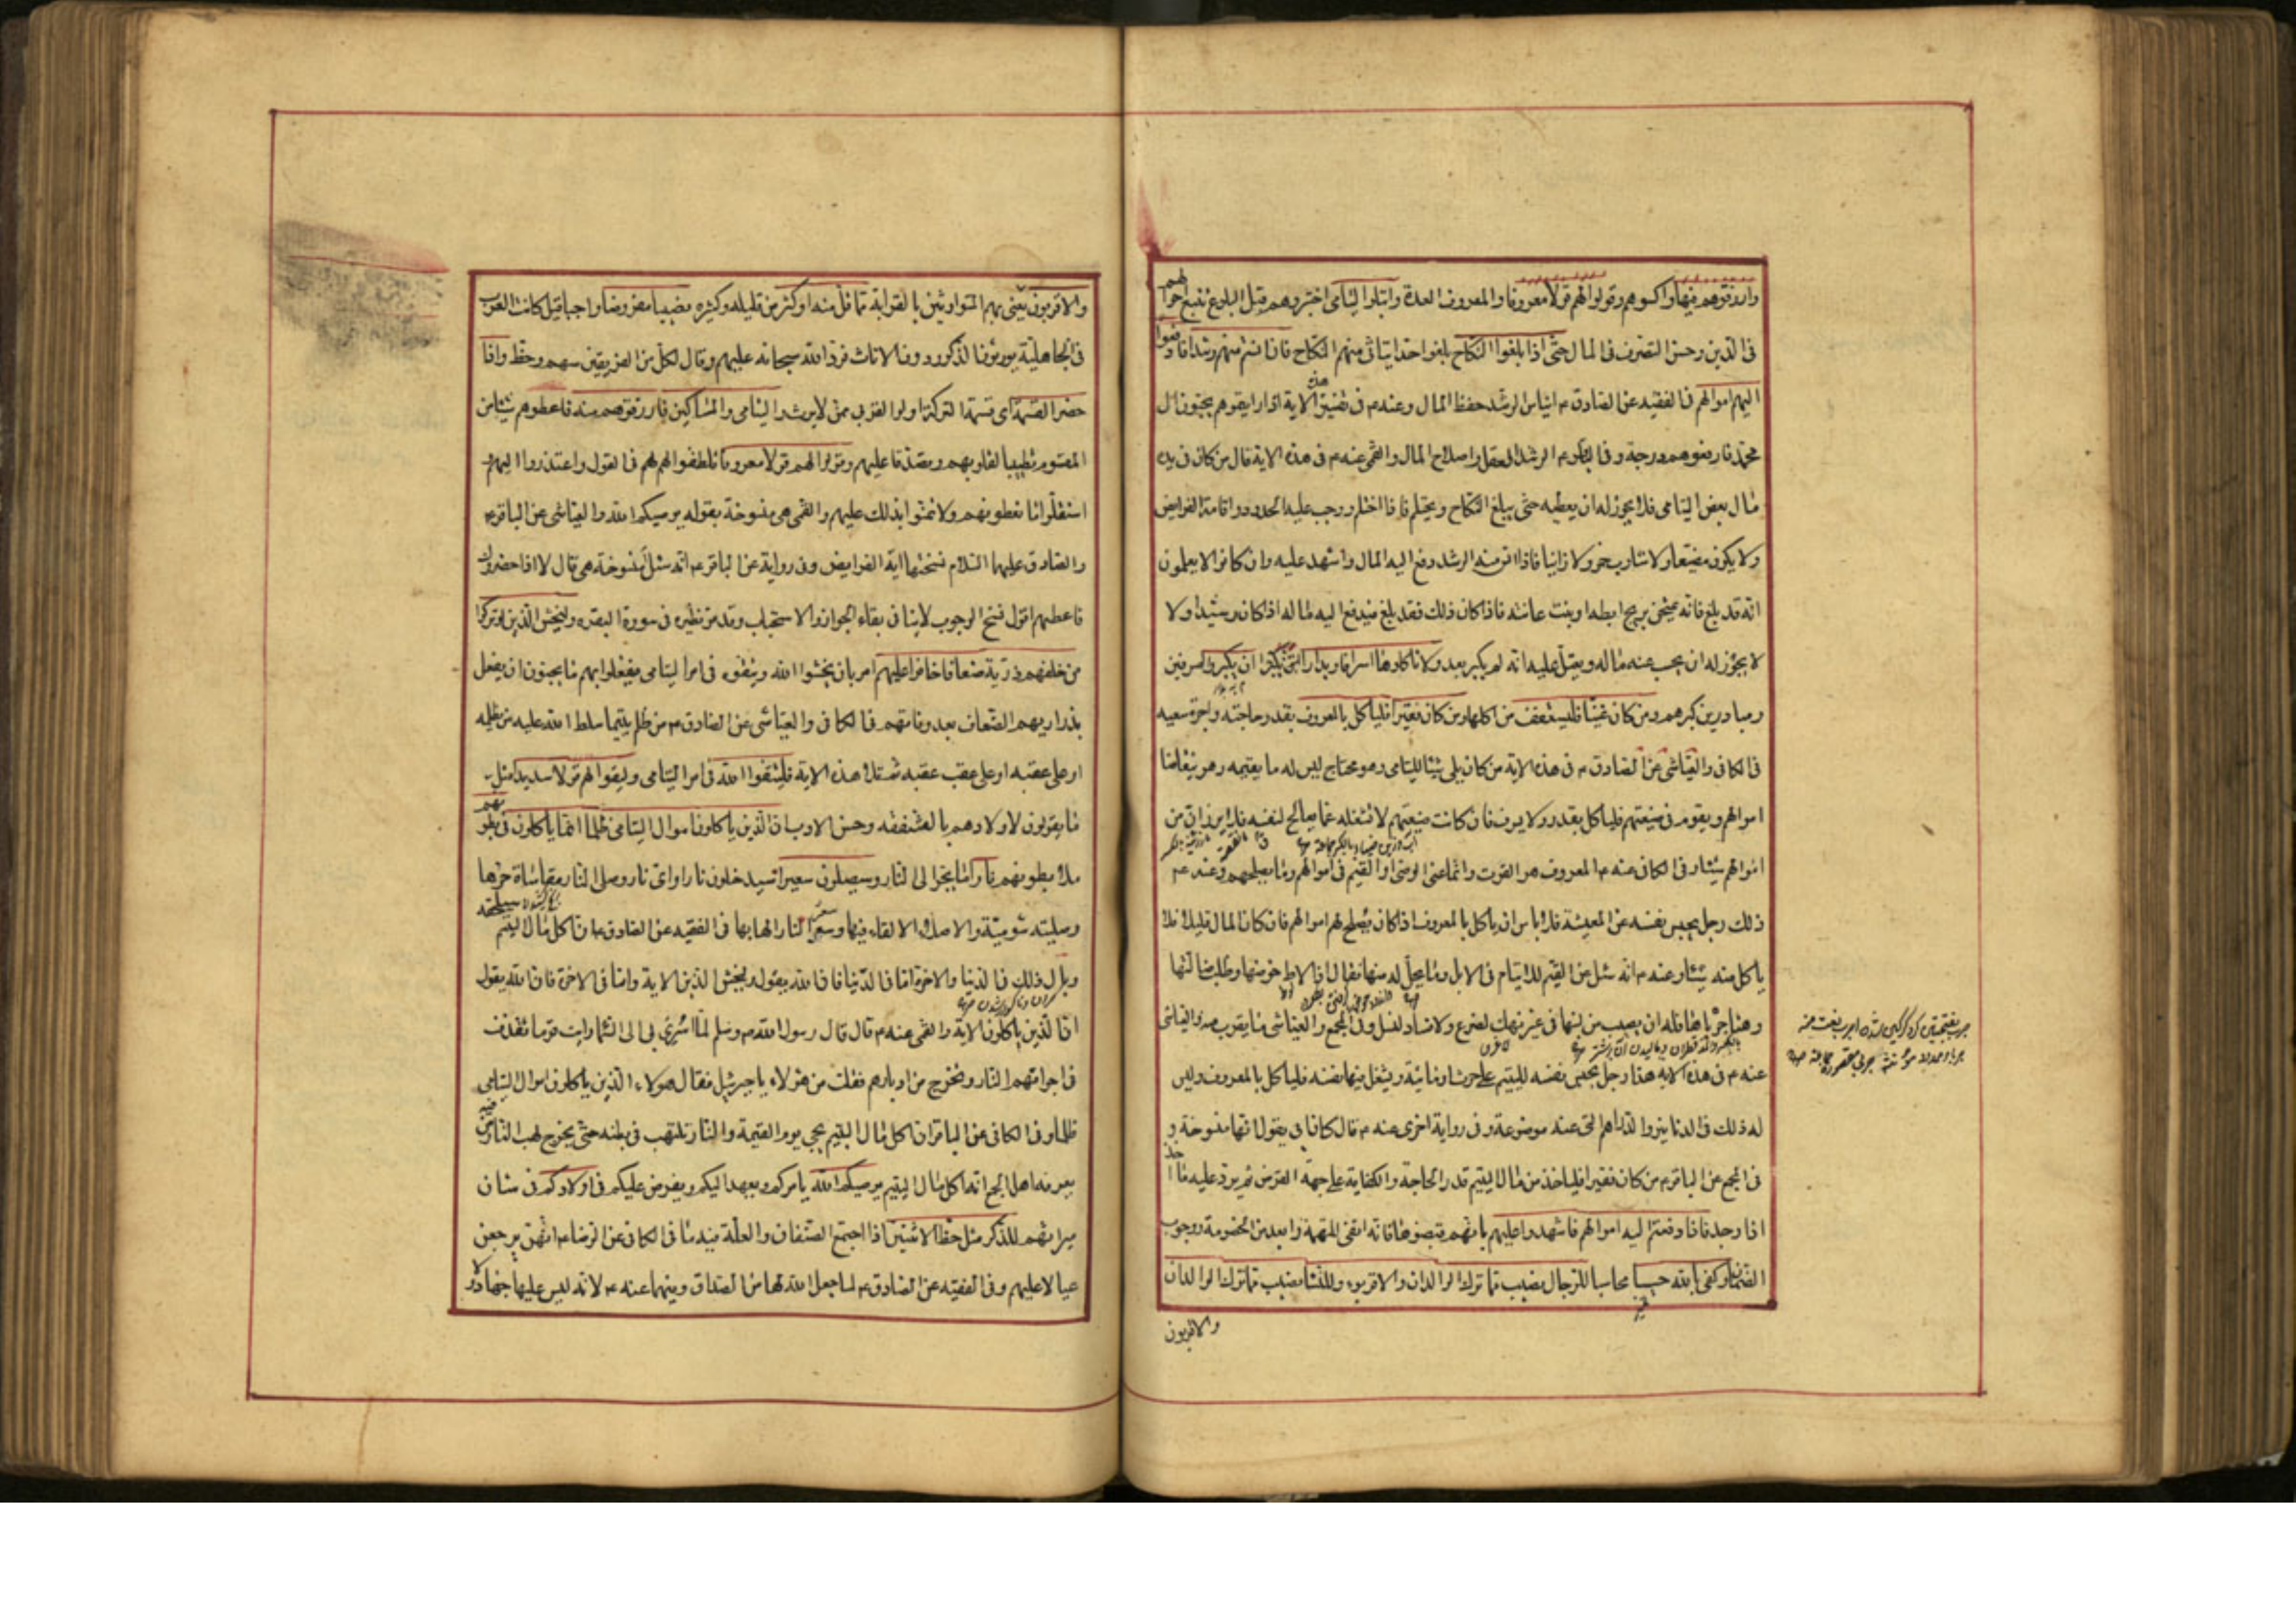 وارزقوهم فيها واكسوهم وقولوا لهم قولا معروفا والمعروف العدة وابتلوا اليتامى اختبروهم قبل البلوغ بتتبع احوالهم
فى الدين وحسن التصرف فى المال حتى اذا بلغوا النكاح بلغوا حدا يتاتى منهم النكاح فان انستم منهم رشدا فادفعوا
اليهم اموالهم فى الفقيه عن الصادق ع ايناس الرشد حفظ المال وعنه ع فى تفسير هذه الاية اذا رايتموهم يحبون ال
محمد فارفعوهم درجة وفى المجمع عن الباقر ع الرشد العقل واصلاح المال والقمى عنه ع فى هذه الاية قال من كان فى يده
مال بعض اليتامى فلا يجوز له ان يعطيه حتى يبلغ النكاح ويحتلم فاذا احتلم ووجب عليه الحدود واقامة الفرايض
ولا يكون مضيعا ولا شارب خمر ولا زانيا فاذا انس منه الرشد دفع اليه المال واشهد عليه وان كانوا لا يعلمون
انه قد بلغ فانه يمتحن بريح ابطه او نبت عانته فاذا كان ذلك فقد بلغ فيدفع اليه ماله اذا كان رشيدا ولا
لا يجوز له ان يحبس عنه ماله ويعتل عليه انه لم يكبر بعد ولا تاكلوها اسرافا وبدارا ان يكبروا مسرفين
ومبادرين كبرهم ومن كان غنيا فليستعفف من اكلها ومن كان فقيرا فلياكل بالمعروف بقدر حاجته واجرة سعيه
فى الكافى والعياشى عن الصادق ع فى هذه الاية من كان يلى شيئا لليتامى وهو محتاج ليس له ما يقيمه وهو يتقاضا
اموالهم ويقوم فى ضيعتهم فلياكل بقدر ولا يسرف فان كانت ضيعتهم لا تشغله عما يعالج لنفسه فلا يرزان من
اموالهم شيئا وفى الكافى عنه ع المعروف هو القوت وانما عنى الوصى او القيم فى اموالهم وما يصلحهم وعنه ع
ذلك رجل يحبس نفسه عن المعيشة فلا باس ان ياكل بالمعروف اذا كان يصلح لهم اموالهم فان كان المال قليلا فلا
ياكل منه شيئا وعنه ع انه سئل عن القيم للايتام فى الابل وما يحل له منها فقال اذا لاط حوضها وطلب ضالتها
وهنا جرباها فله ان يصيب من لبنها فى غير نهك لضرع ولا فساد لنسل وفى المجمع والعياشى ما يقرب منه والعياشى
عنه ع فى هذه الاية هذا رجل يحبس نفسه لليتيم على حرث او ماشية ويشغل فيها نفسه فلياكل بالمعروف وليس
له ذلك فى الدنانير والدراهم التى عنده موضوعة وفى رواية اخرى عنه ع قال كان ابى يقول انها منسوخة و
فى المجمع عن الباقر ع من كان فقيرا فلياخذ من مال اليتيم قدر الحاجة والكفاية على جهة القرض ثم يرد عليه ما اخذ
اذا وجد فاذا دفعتم اليهم اموالهم فاشهدوا عليهم بانهم قبضوها فانه انفى للتهمة وابعد من الخصومة ووجوب
الضمان وكفى بالله حسيبا محاسبا للرجال نصيب مما ترك الوالدان والاقربون وللنساء نصيب مما ترك الوالدان
والاقربون
والاقربون يعنى بهم المتوارثين بالقرابة مما قل منه او كثر من قليله وكثيره نصيبا مفروضا واجبا قيل كانت العرب
فى الجاهلية يورثون الذكور دون الاناث فرد الله سبحانه عليهم وقال لكل من الفريقين سهم وحظ واذا
حضر القسمة اى قسمة التركة اولوا القربى ممن لا يرث واليتامى والمساكين فارزقوهم منه فاعطوهم شيئا من
المقسوم تطييبا لقلوبهم وتصدقا عليهم وقولوا لهم قولا معروفا تلطفوا لهم فى القول واعتذروا اليهم و
استقلوا ما تعطونهم ولا تمنوا بذلك عليهم والقمى هى منسوخة بقوله يوصيكم الله والعياشى عن الباقر ع
والصادق عليهما السلام نسختها اية الفرايض وفى رواية عن الباقر ع انه سئل امنسوخة هى قال لا اذا حضروك
فاعطهم اقول نسخ الوجوب لا ينافى بقاء الجواز والاستحباب وقد مر نظيره فى سورة البقرة وليخش الذين لو تركوا
من خلفهم ذرية ضعافا خافوا عليهم امر بان يخشوا الله ويتقوه فى امر اليتامى فيفعلوا بهم ما يحبون ان يفعل
بذراريهم الضعاف بعد وفاتهم فى الكافى والعياشى عن الصادق ع من ظلم يتيما سلط الله عليه من يظلمه
او على عقبه او على عقب عقبه ثم تلا هذه الاية فليتقوا الله فى امر اليتامى وليقولوا لهم قولا سديدا مثل
ما يقولون لاولادهم بالشفقة وحسن الادب ان الذين ياكلون اموال اليتامى ظلما انما ياكلون فى بطونهم
ملأ بطونهم نارا ما يجر الى النار وسيصلون سعيرا سيدخلون نارا واى نار وصلى النار مقاساة حرها
وصليته شويته والاصلاء الالقاء فيها وسعر النار الهابها فى الفقيه عن الصادق ع ان اكل مال اليتيم سيلحقه
وبال ذلك فى الدنيا والاخرة اما فى الدنيا فان الله يقول وليخش الذين الاية واما فى الاخرة فان الله يقول
ان الذين ياكلون الاية والقمى عنه ع قال قال رسول الله ص وسلم لما اسرى بى الى السماء رايت قوما تقذف
فى اجوافهم النار وتخرج من ادبارهم فقلت من هؤلاء يا جبرئيل فقال هولاء الذين ياكلون اموال اليتامى
ظلما وفى الكافى عن الباقر ان اكل مال اليتيم يجى يوم القيمة والنار تلتهب فى بطنه حتى يخرج لهب النار من فيه
يعرفه اهل الجمع انه اكل مال اليتيم يوصيكم الله يامركم ويعهد اليكم ويفرض عليكم فى اولادكم فى شان
ميراثهم للذكر مثل حظ الانثيين اذا اجتمع الصنفان والعلة فيه ما فى الكافى عن الرضا ع انهن يرجعن
عيالا عليهم وفى الفقيه عن الصادق ع لما جعل الله لها من الصداق وفيهما عنه ع لانه ليس عليها جهاد ولا